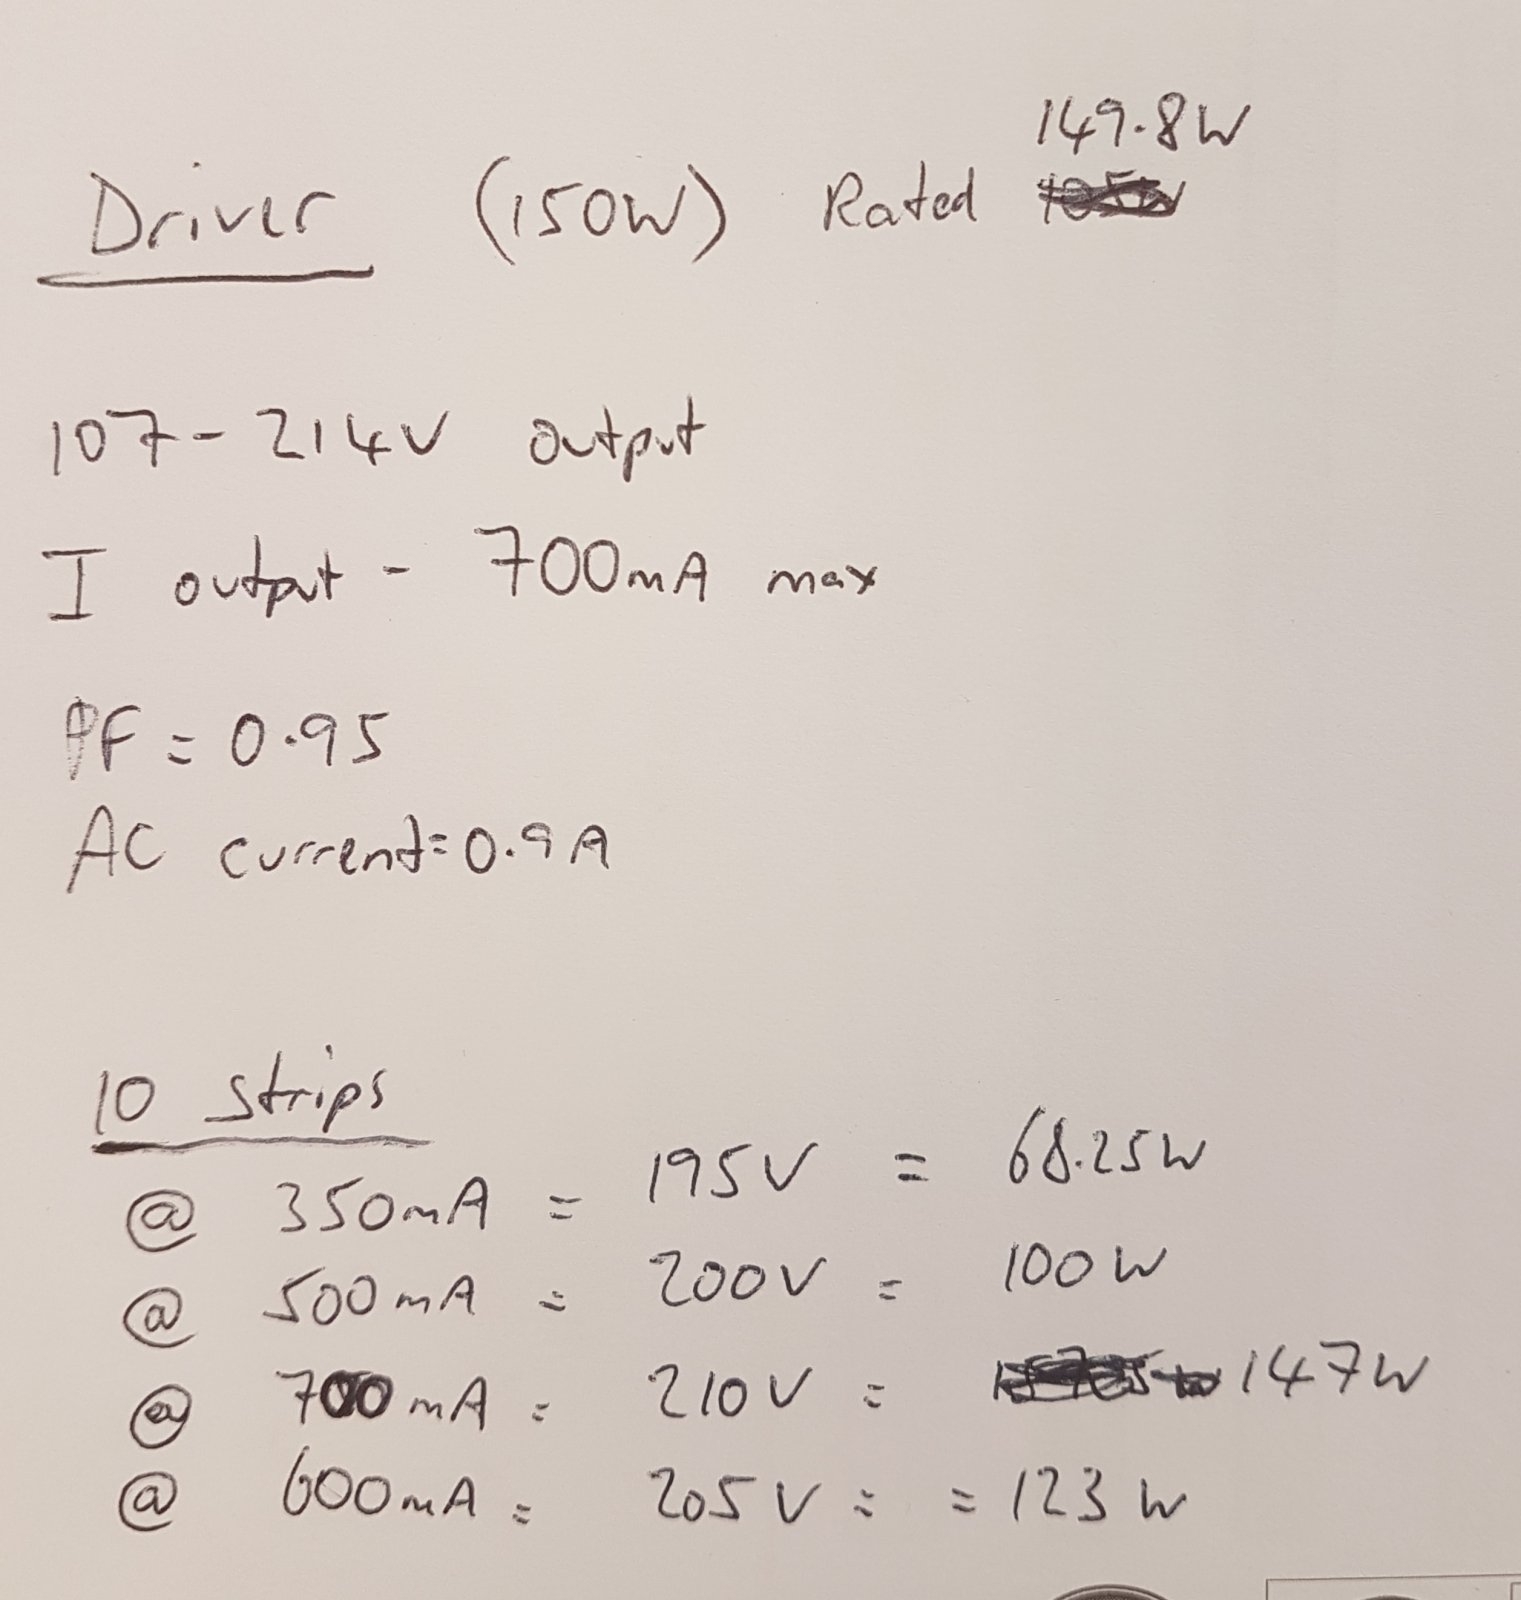 149.8W
Driver (150W) Rated
107-214V output
I output - 700mA max
PF = 0.95
AC current=0.9A
10 strips
@ 350mA = 195V = 68.25W
@ 500mA = 200V = 100W
@ 700mA = 210V = 147W
@ 600mA = 205V = = 123W